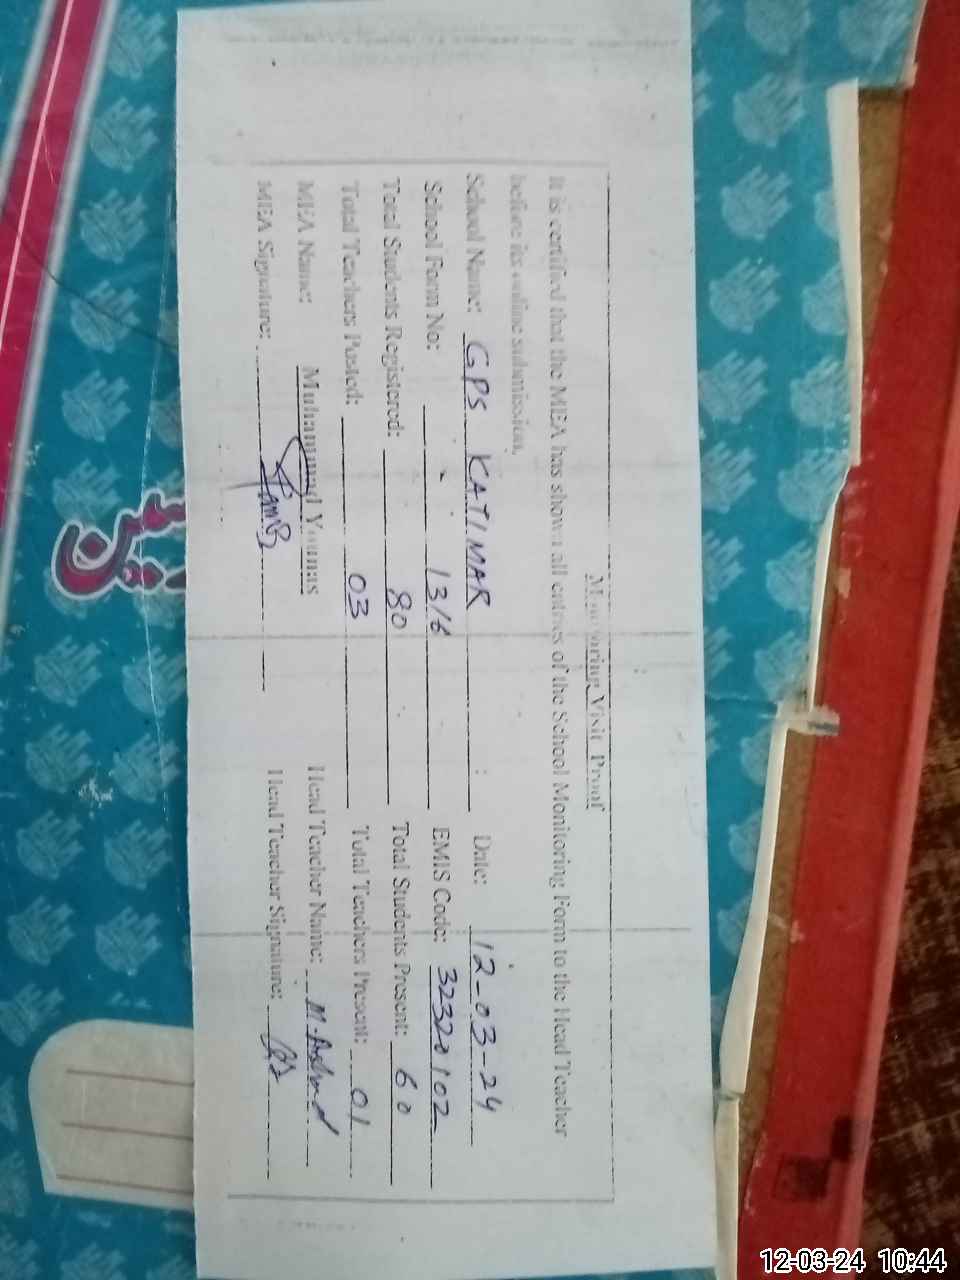 Monitoring Visit Proof
It is certified that the MEA has shown all entries of the School Monitoring Form to the Head Teacher
before its online submission.
School Name: GPS KATIMAR Date: 12-03-24
School Form No: 1316 EMIS Code: 32320102
Total Students Registered: 80 Total Students Present: 60
Total Teachers Posted: 03 Total Teachers Present: 01
MEA Name: Muhammad Younas Head Teacher Name: M.
MEA Signature: Head Teacher Signature:
12-03-24 10:44